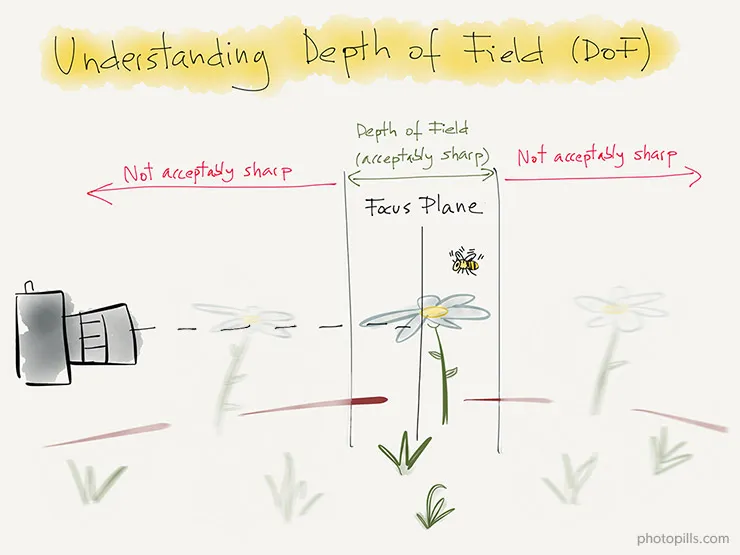 Understanding Depth of Field (DoF)
Depth of Field
(acceptably sharp)
Not acceptably sharp
Not acceptably sharp
Focus Plane
photopills.com